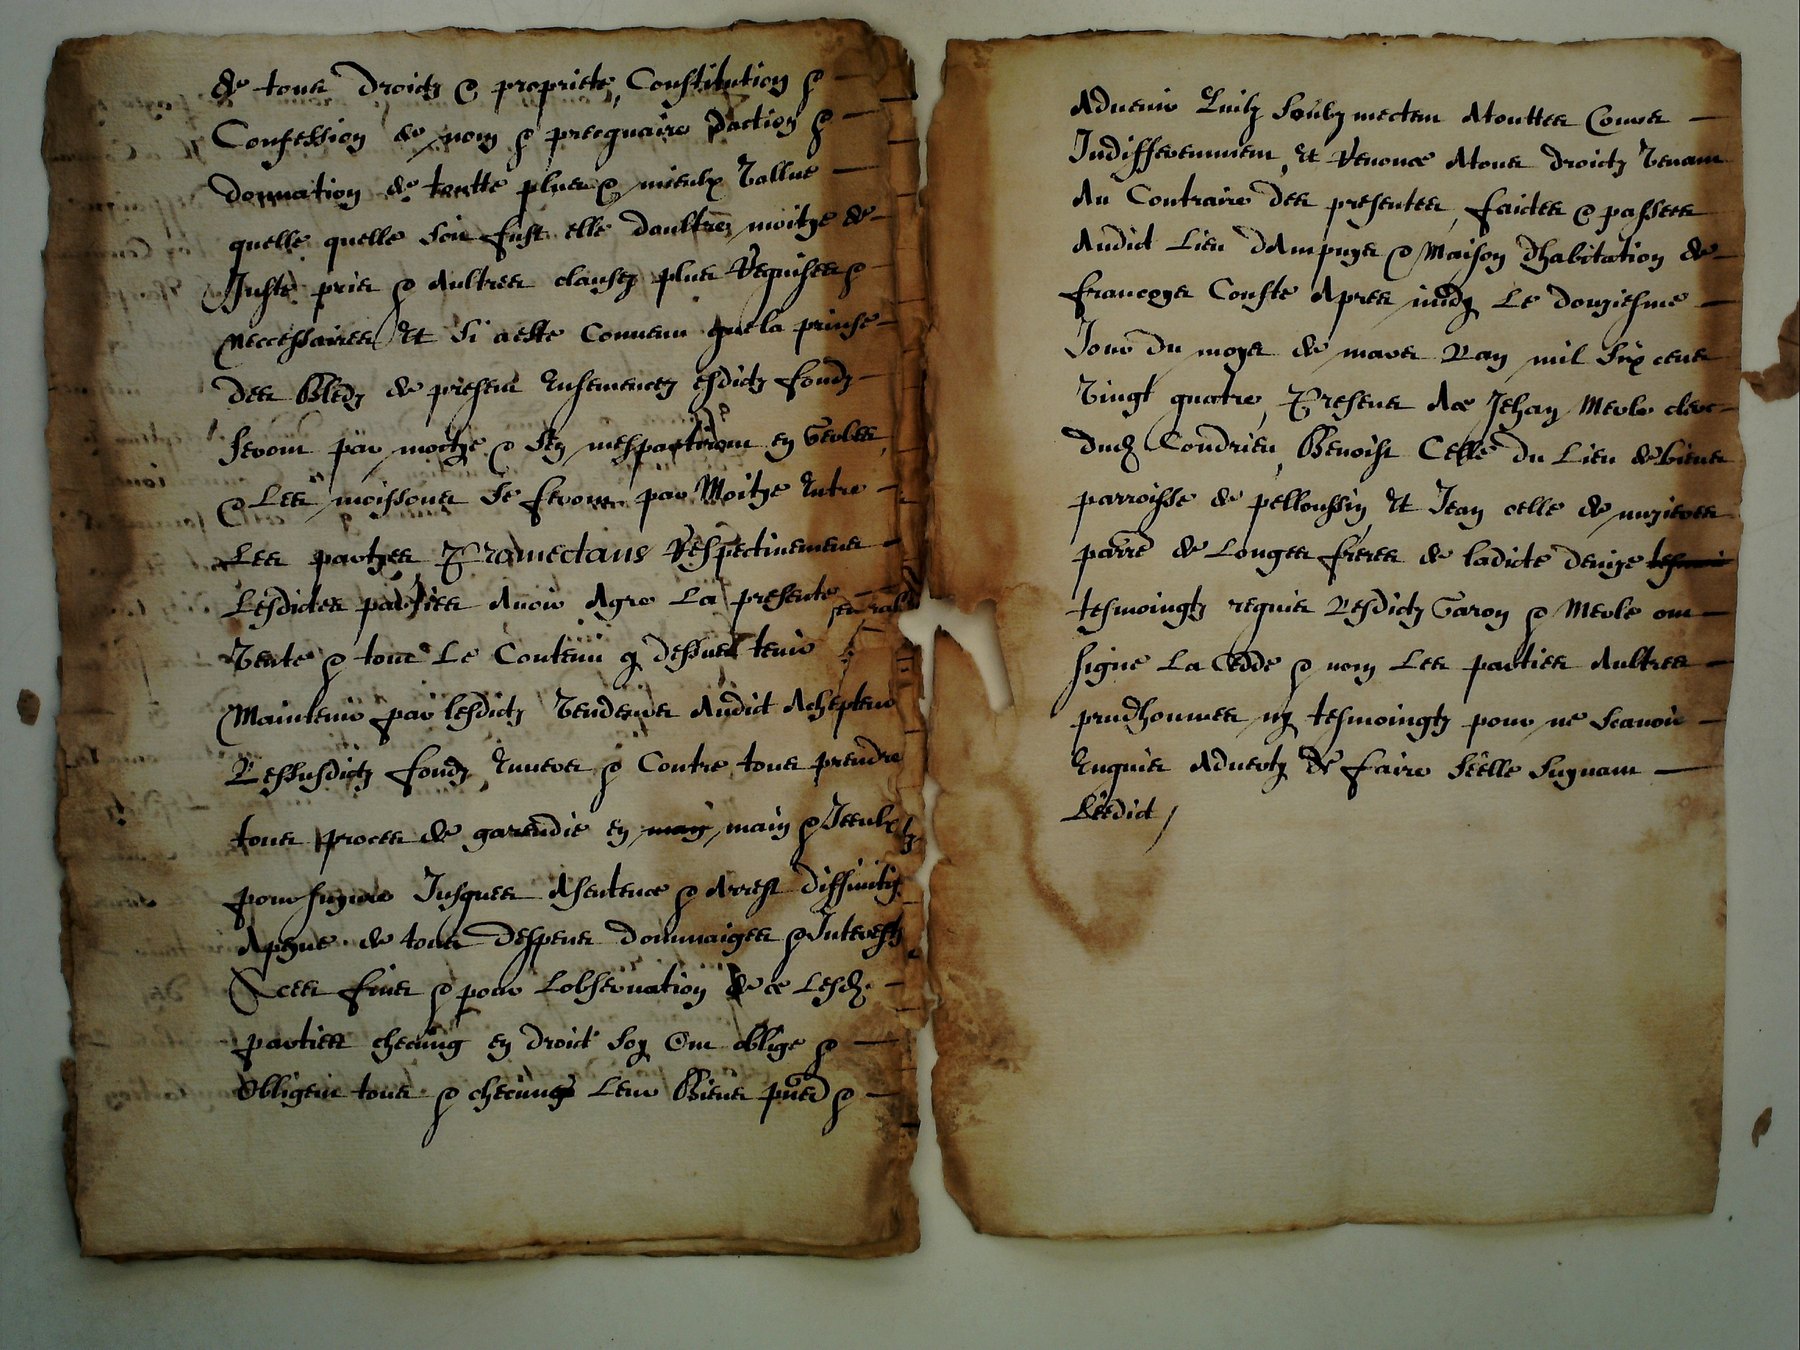 de tous droictz & propriete, Constitution &
Confession de nom & precquaire Daction &
donnation de toutte plus & mieulx Vallue
quelle quelle soit fust elle daultre moitye de
Juste pris & aultres clauses plus Requises &
Neccessaires Et si a este Convenu que la prinse
des Bledz de present Ensemencez esditz fondz
seront par moctye & sen mespartiront en Gerbes
& Les moissons se feront par Moitye Entre
Les partyes Promectans Respectivement
Lesdictes parties Avoir Agre La presente
Vente & tout Le Contenu cy dessus tenir
Maintenir par lesdictz Vendeurs Audict Achepteur
Lessusdictz fondz Envers & Contre tous prendre
tous proces de garendie en main &
poursuyvre Jusques Asentence & Arrest diffinitif
Apeyne de tous despens dommaiges & Interestz
Aces fins & pour Lobservation de ce Lesd.
parties checung en droict soy Ont oblige &
Obligent tous & checungs Leur Biens pnts &
Advenir Quilz soubzmectent Atouttes Cours
Indifferemment, Et Renonce Atous droictz Venant
Au Contraire des presentes, faictes & passees
Audict Lieu DAmpuys & Maison Dhabitation de
francoys Conste Apres midy Le douziesme
Jour du moys de mars Lan mil six cens
Vingt quatre, Presens Ace Jehan Merle clerc
dud. Condrieu, Benoist Celle du Lieu de
parroisse de pelloussin Et Jean celle de
parre de Longes freres de ladicte denize
tesmoingtz requis Lesdictz Garon & Merle ont
signe La Cedde & non Les parties Aultres
prudhommes ny tesmoingtz pour ne Scavoir
Enquis Advertz de faire Seelle Suyvant
Leedict